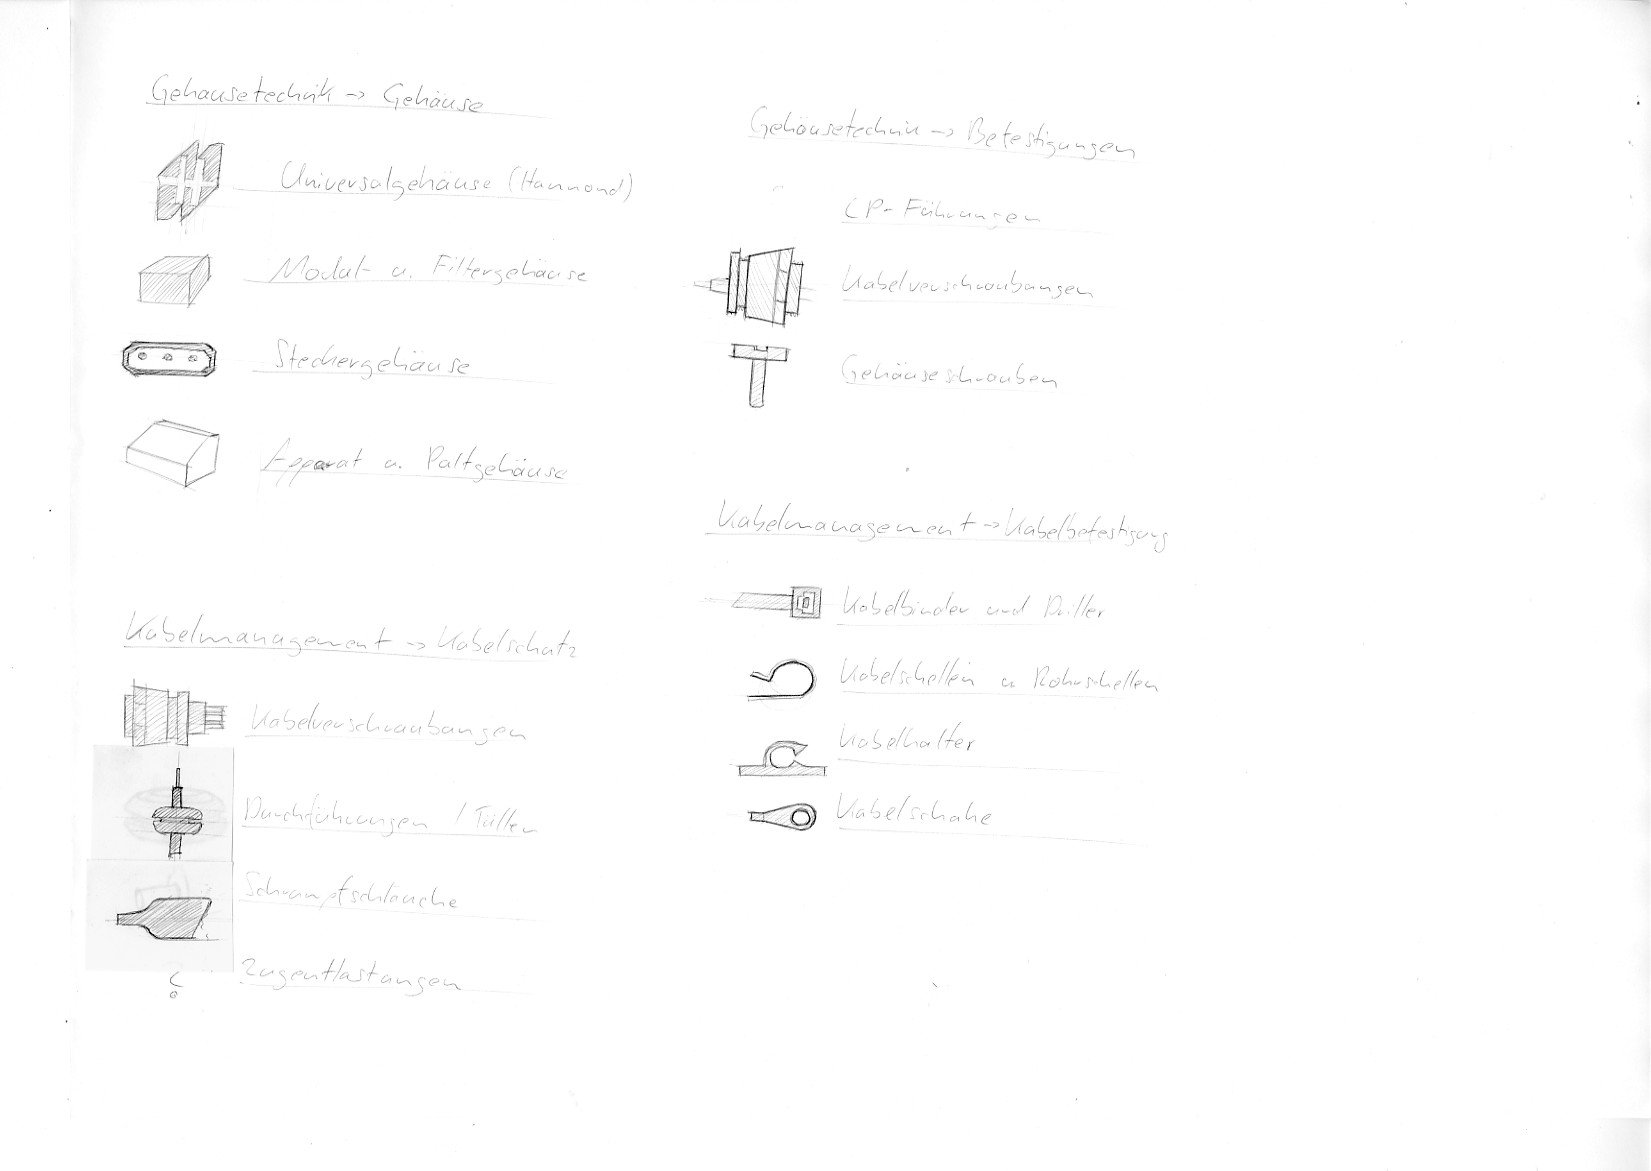 Gehäusetechnik → Gehäuse
Universalgehäuse (Hammond)
Modul- u. Filtergehäuse
Steckergehäuse
Apparat u. Pultgehäuse
Kabelmanagement → Kabelschutz
Kabelverschraubungen
Durchführungen / Tüllen
Schrumpfschläuche
Zugentlastungen
Gehäusetechnik → Befestigungen
LP-Führungen
Kabelverschraubungen
Gehäuseschrauben
Kabelmanagement → Kabelbefestigung
Kabelbinder und Driller
Kabelschellen u Rohrschellen
Kabelhalter
Kabelschuhe